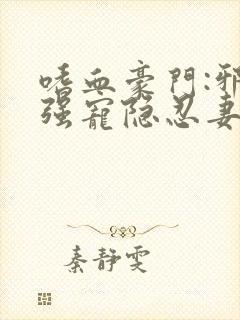 嗜血豪門:邪
强寵隐忍妻
秦静雯